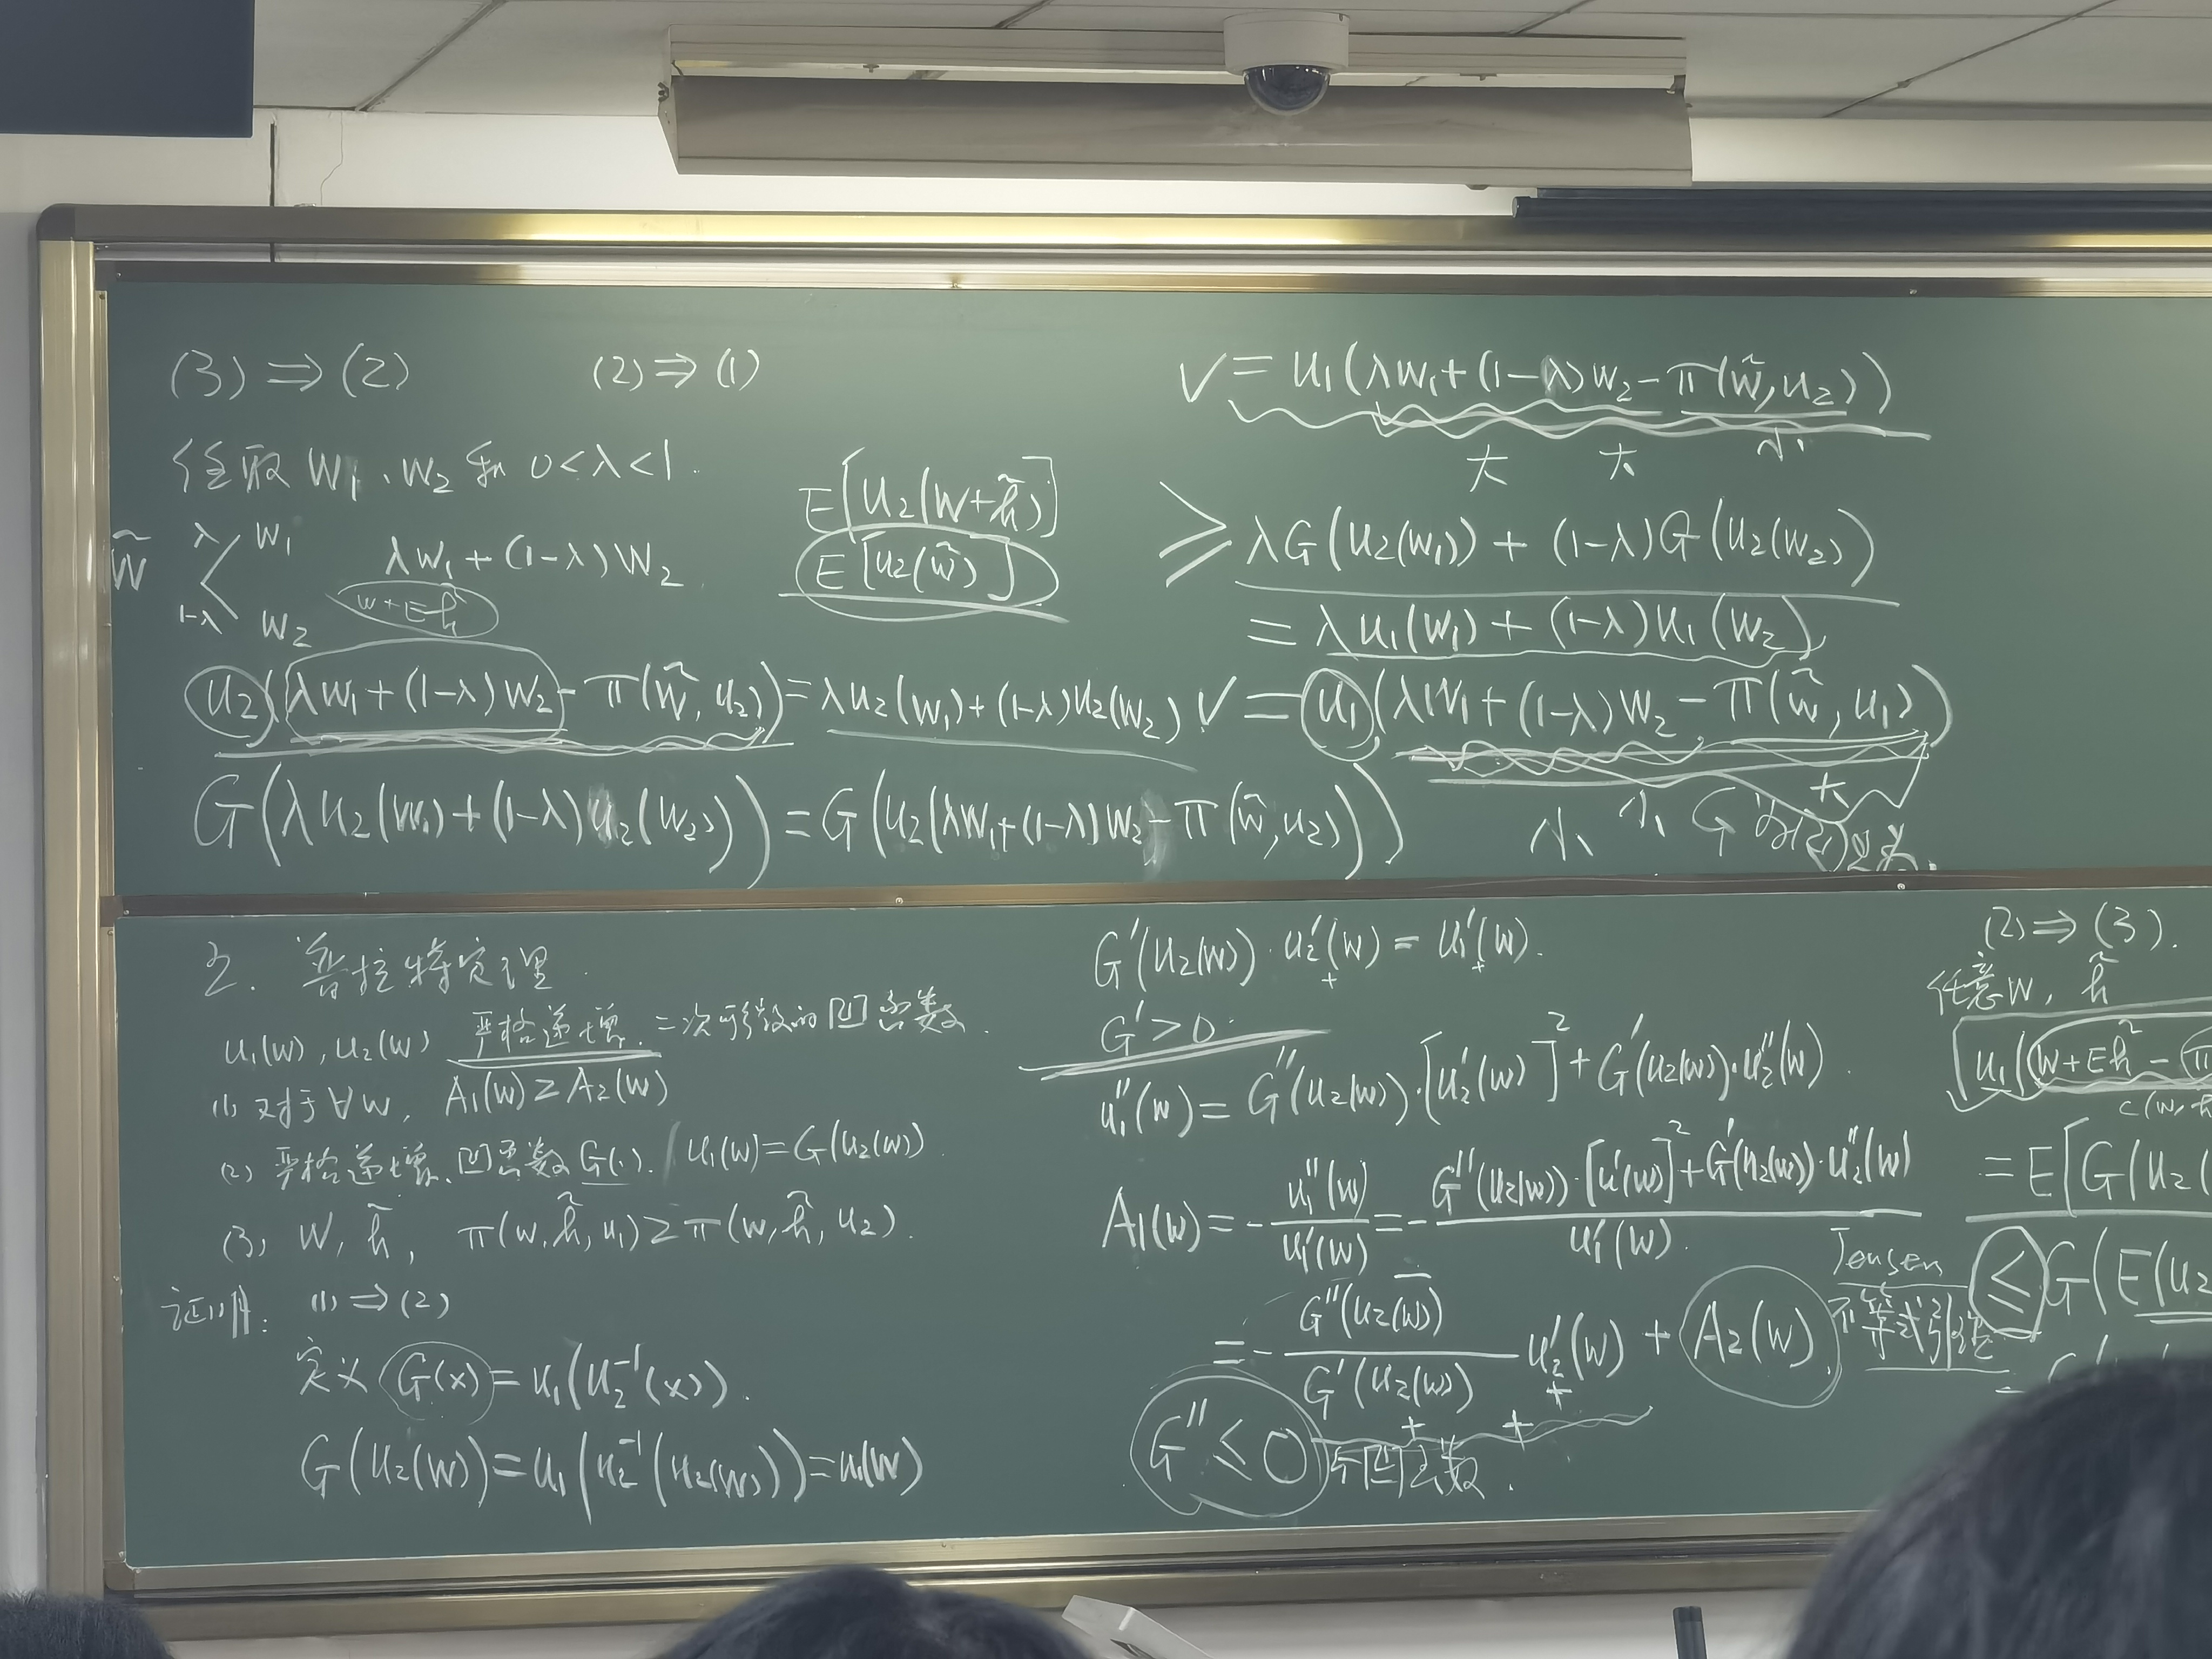 (3) ⇒ (2)　　(2) ⇒ (1)
任取 W₁、W₂ 和 0<λ<1.
W̃ λ W₁ 1-λ W₂
λW₁+(1-λ)W₂
W+Eh̃
E[u₂(W+h̃)]
E[u₂(W̃)]
u₂(λW₁+(1-λ)W₂-π(W̃,u₂))=λu₂(W₁)+(1-λ)u₂(W₂)
G(λu₂(W₁)+(1-λ)u₂(W₂))=G(u₂(λW₁+(1-λ)W₂-π(W̃,u₂)))
√=u₁(λW₁+(1-λ)W₂-π(W̃,u₂))
大 大 小
≥λG(u₂(W₁))+(1-λ)G(u₂(W₂))
=λu₁(W₁)+(1-λ)u₁(W₂)
√=u₁(λW₁+(1-λ)W₂-π(W̃,u₁))
大
小 小 G
2. 普拉特定理.
u₁(W),u₂(W) 严格递增.二次可微的凹函数.
(1) 对于∀W, A₁(W)≥A₂(W)
(2) 严格递增.凹函数G(·). u₁(W)=G(u₂(W)).
(3) W,h̃, π(W,h̃,u₁)≥π(W,h̃,u₂).
证明: (1)⇒(2)
定义 G(x)=u₁(u₂⁻¹(x)).
G(u₂(W))=u₁(u₂⁻¹(u₂(W)))=u₁(W)
G′(u₂(W))·u₂′(W)=u₁′(W).
+ +
G′>0.
u₁″(W)=G″(u₂(W))·[u₂′(W)]²+G′(u₂(W))·u₂″(W).
A₁(W)=-u₁″(W)/u₁′(W)=-G″(u₂(W))·[u′(W)]²+G′(u₂(W))·u₂″(W)/u₁′(W).
=-G″(u₂(W))/G′(u₂(W)) u₂′(W)+A₂(W).
+ + +
G″≤0 凹函数.
(2)⇒(3).
任意W, h̃
u₁(W+Eh̃-π
c(W,h̃
=E[G(u₂(
Jensen
不等式
≤G(E(u₂